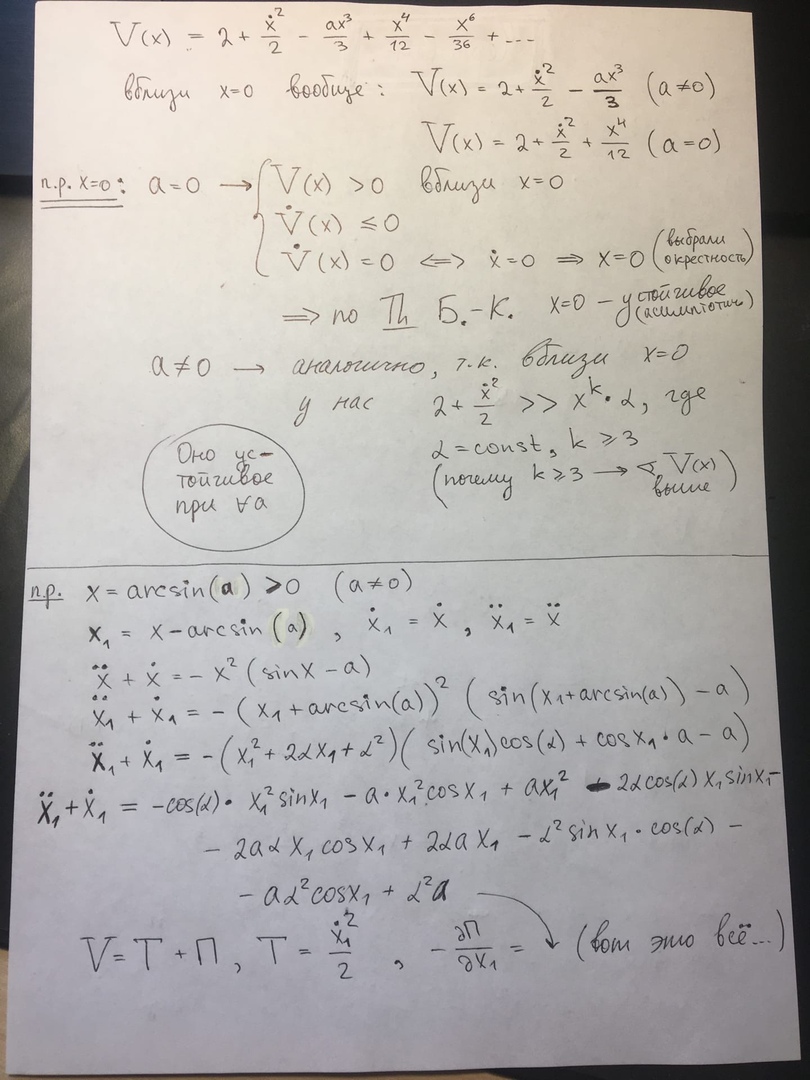 V(x) = 2 + ẋ²/2 − ax³/3 + x⁴/12 − x⁶/36 + ...
вблизи x=0 вообще: V(x) = 2 + ẋ²/2 − ax³/3 (a≠0)
V(x) = 2 + ẋ²/2 + x⁴/12 (a=0)
п.р. x=0: a=0 → { V(x) > 0 вблизи x=0
V̇(x) ≤ 0
V̇(x) = 0 ⟺ ẋ=0 ⟹ x=0 (выбрали окрестность)
⟹ по Th Б.-К. x=0 – устойчивое (асимптотич)
a≠0 → аналогично, т.к. вблизи x=0
у нас 2 + ẋ²/2 >> xᵏ·α, где
α=const, k ⩾ 3
(почему k⩾3 → ∢ V(x) выше)
Оно ус-
тойчивое
при ∀a
п.р. x = arcsin(a) > 0 (a≠0)
x₁ = x − arcsin(a), ẋ₁ = ẋ, ẍ₁ = ẍ
ẍ + ẋ = − x² (sinx − a)
ẍ₁ + ẋ₁ = − (x₁ + arcsin(a))² (sin(x₁+arcsin(a)) − a)
ẍ₁ + ẋ₁ = −(x₁² + 2αx₁ + α²)(sin(x₁)cos(α) + cosx₁·a − a)
ẍ₁ + ẋ₁ = −cos(α)· x₁² sinx₁ − a·x₁² cosx₁ + ax₁² − 2αcos(α) x₁ sinx₁ −
− 2aα x₁ cosx₁ + 2αa x₁ − α² sinx₁·cos(α) −
− aα² cosx₁ + α²a
V = T + П, T = ẋ₁²/2, −∂П/∂x₁ = (вот это всё...)